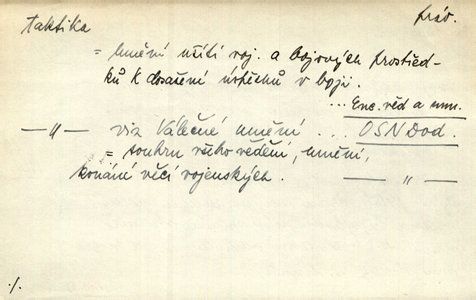 taktika práv.
= umění užití voj. a bojových prostřed-
ků k dosažení úspěchu v boji.
... Enc. věd a um.
—〃— viz Válečné umění ... OSNDod.
= souhrn všeho vědění, umění,
konání věcí vojenských. —〃—
./.